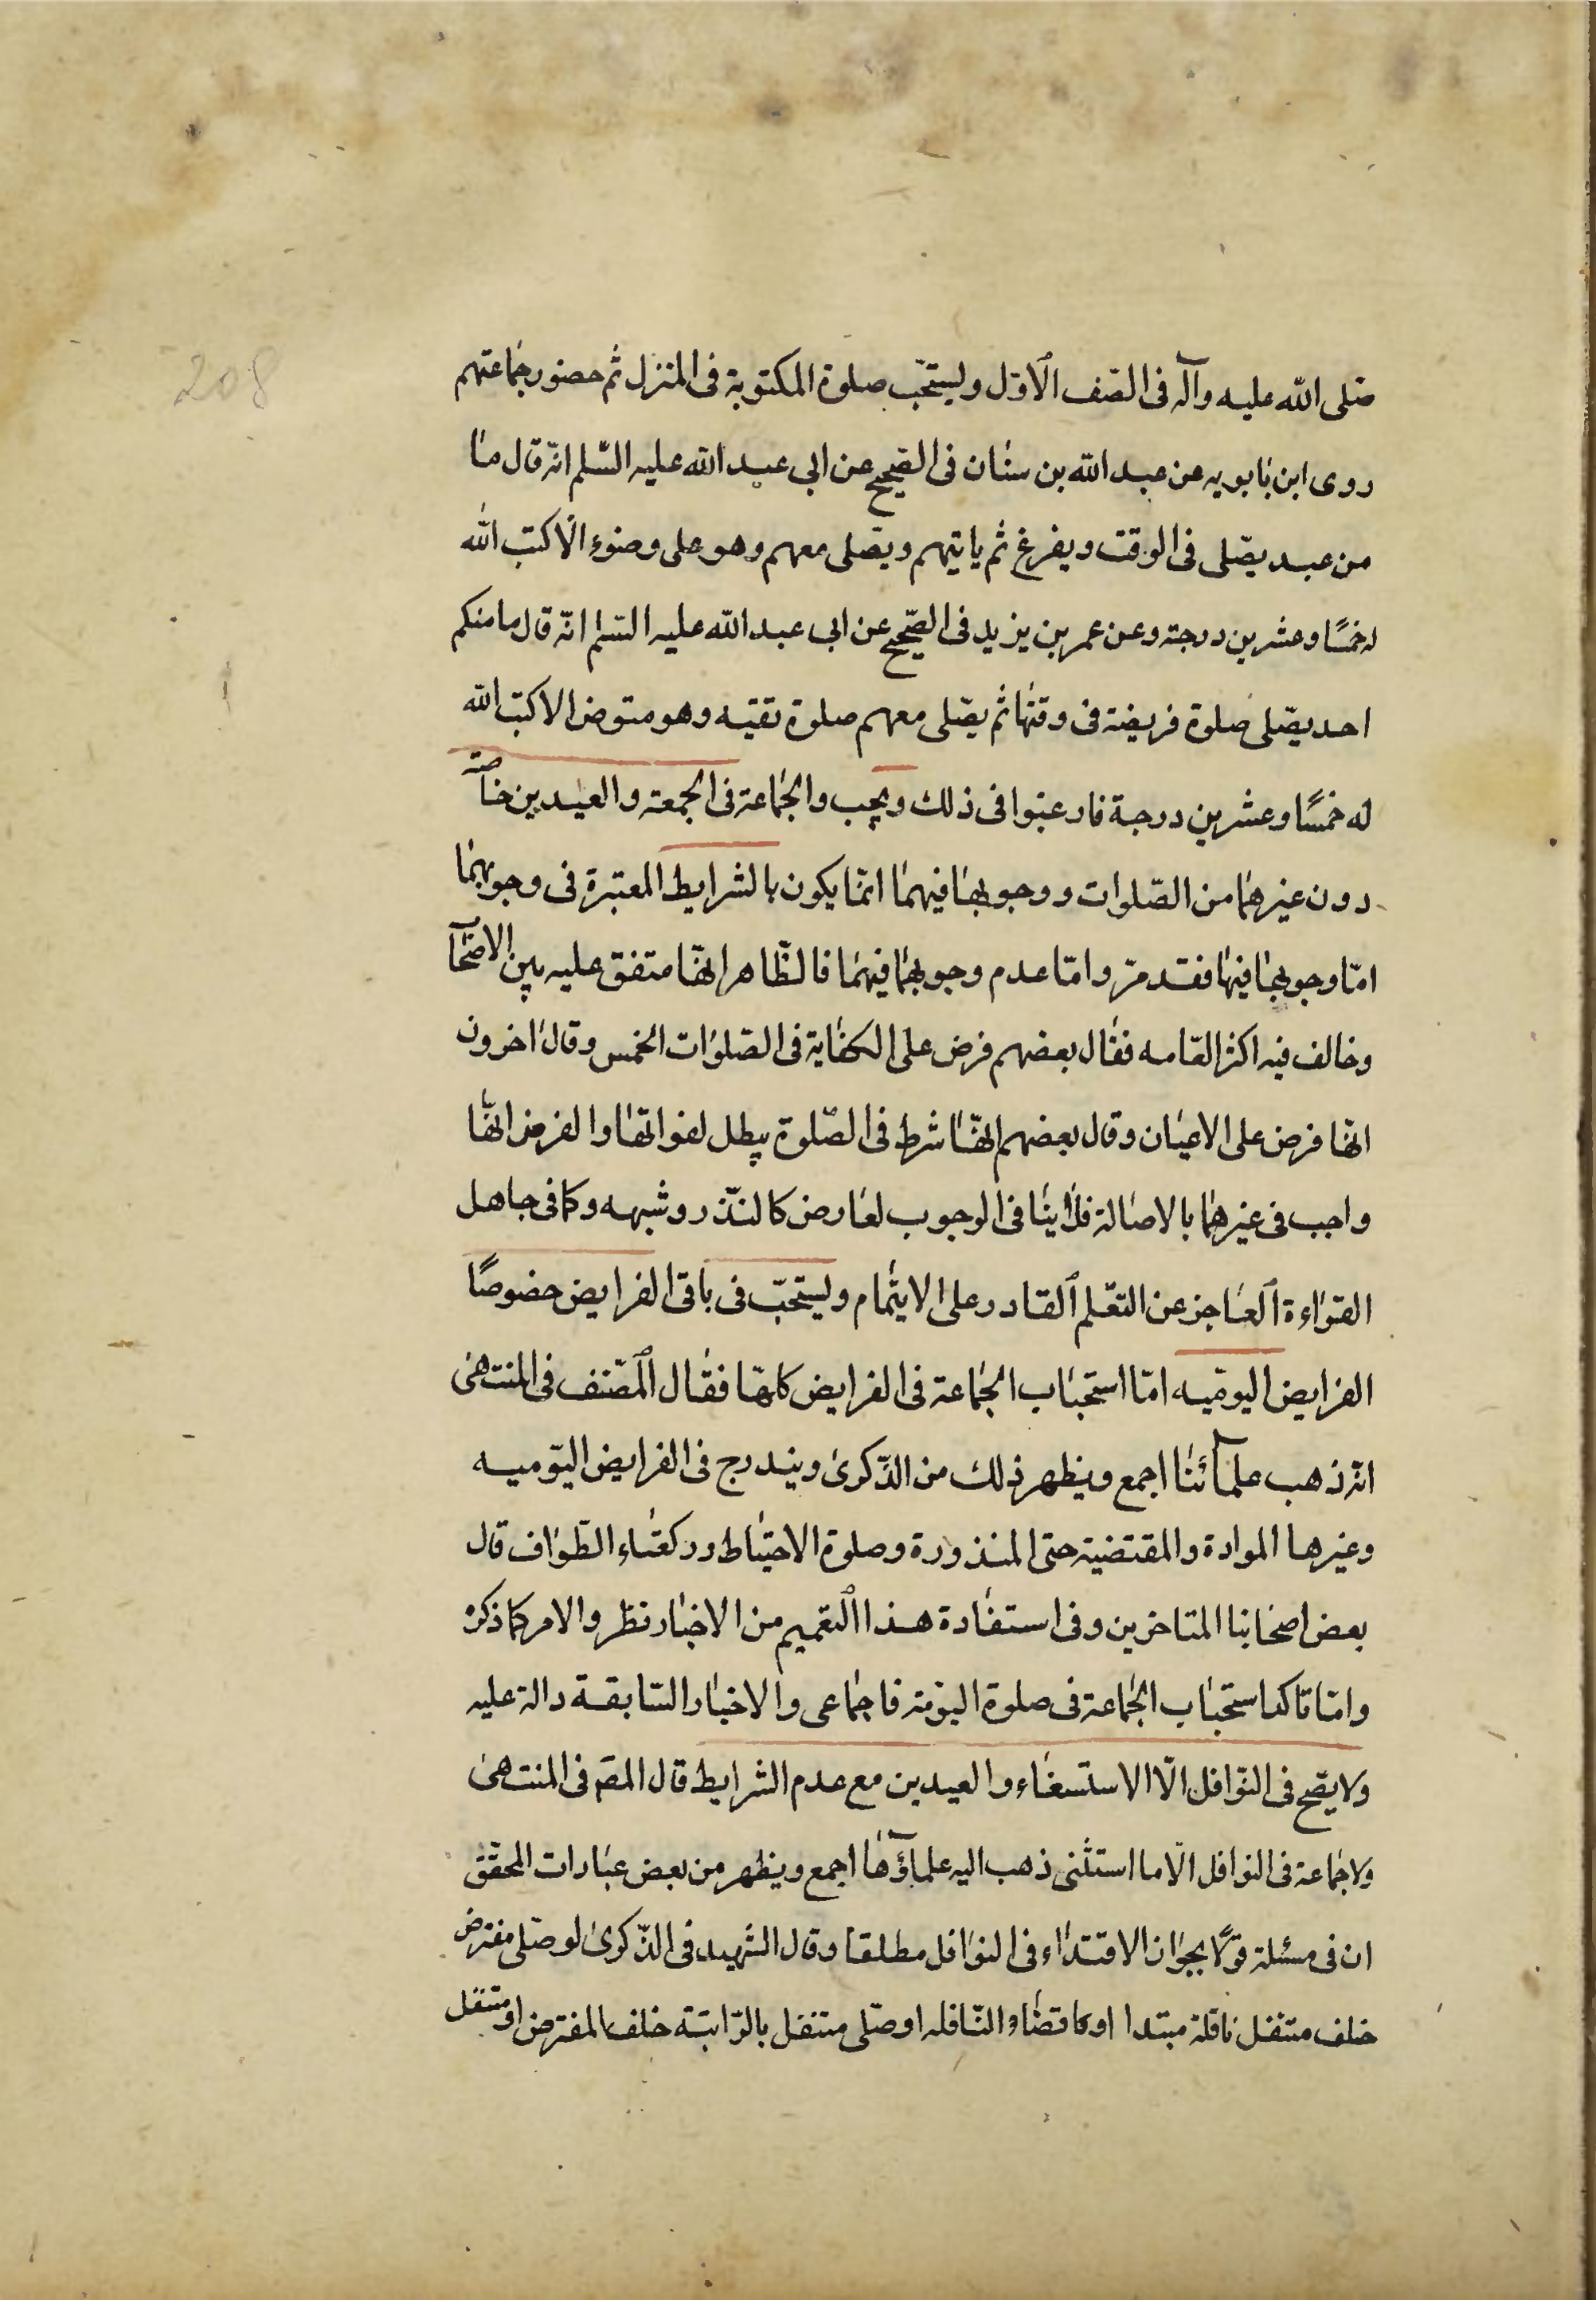 208
صلی الله علیه وآله فی الصّف الاوّل ویستحّب صلوة المکتوبة فی المنزل ثم حضور جماعتهم
روی ابن بابویه عن عبد الله بن سنان فی الصّحیح عن ابی عبد الله علیه السّلم انّه قال ما
من عبد یصّلی فی الوقت ویفرغ ثم یاتیهم ویصّلی معهم وهو علی وضوء الّا کتب الله
له خمسًا وعشرین درجة وعن عمر بن یزید فی الصّحیح عن ابی عبد الله علیه السّلم انّه قال ما منکم
احد یصّلی صلوة فریضة فی وقتها ثم یصّلی معهم صلوة تقیّه وهو متوض الا کتب الله
له خمسًا وعشرین درجة فارغبوا فی ذلک ویجب والجماعة فی الجمعه والعیدین خاصّة
دون غیرهما من الصّلوات ووجوبها فیهما انمّا یکون بالشرایط المعتبرة فی وجوبهما
امّا وجوبها فیها فقد مرّ وامّا عدم وجوبهما فیهما فالظّاهر انهّا متفق علیه بین الاصحآ
وخالف فیه اکثر العّامه فقال بعضهم فرض علی الکفایة فی الصّلوات الخمس وقال اخرون
انهّا فرض علی الاعیان وقال بعضهم انهّا شرط فی الصّلوة یبطل لفواتها والفرض انهّا
واجب فی غیرهما بالاصالة فلا ینافی الوجوب لعارض کالنّذر وشبهه وکما فی جاهل
القراءة العاجز عن التعّلم القادر علی الایتمام ویستحّب فی باقی الفرایض خصوصًا
الفرایض الیومیّه امّا استحباب الجماعة فی الفرایض کلهّا فقال المصّنف فی المنتهی
انّه ذهب علمآئنا اجمع ویظهر ذلک من الذّکری ویندرج فی الفرایض الیّومیه
وغیرها الموادة والمقتضیة حتی المنذورة وصلوة الاحتیاط ورکعتاء الطّواف قال
بعض اصحابنا المتاخرین وفی استفادة هذا التعمیم من الاخبار نظر والامر کما ذکره
وامّا تاکد استحباب الجماعة فی صلوة الیوّمّة فاجماعی والاخبار السّابقة دالة علیه
ولا یصّح فی النّوافل الّا الاستسغاء والعیدین مع عدم الشرایط قال المصّ فی المنتهی
ولا جماعة فی النوافل الّا ما استثنی ذهب الیه علمآؤها اجمع ویظهر من بعض عبارات المحقّق
ان فی مسئلة قولًا بجواز الاقتداء فی النوافل مطلقا وقال الشهید فی الذّکری لو صّلی مفترض
خلف متنفل نافلة مبتدا او کا قضاء النّافله او صّلی متنفل بالرّاتبة خلف المفترض او متنفل